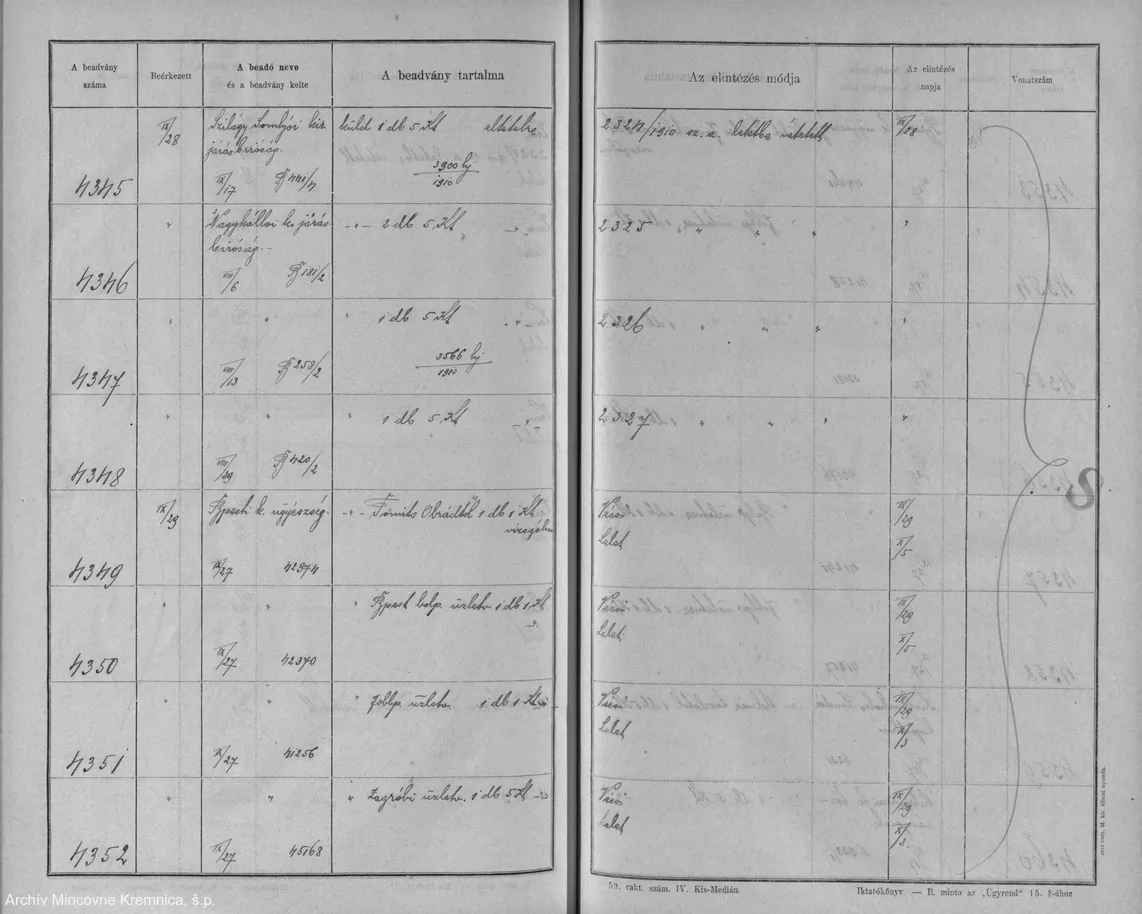 A beadvány
száma
Beérkezett
A beadó neve
és a beadvány kelte
A beadvány tartalma
Az elintézés módja
Az elintézés
napja
Vonatszám
4345
IX/28
Szilágy Somlyói kir
járásbíróság.
IX/17
küld 1 db 5 Kt
3900 bj
1910
2324/1910 sz. a. letétbe tétetett
IX/28
4346
"
Nagykállói k. járás-
bíróság.
VIII/6
181/2
-"- 2 db 5 Kt
-"-
2325 " " "
"
4347
" "
VIII/13
258/2
" 1 db 5 Kt
-"-
3566 bj
1910
2326 " " "
"
4348
" "
VIII/29
420/2
" 1 db 5 Kt
-"-
2327 " " "
"
4349
IX/29
Bpesti k. ügyészség.
IX/27
42974
1 db 1 Kt
Lelet
IX/29
X/5
4350
" "
IX/27
42370
" Bpest belp. üzletv. 1 db 1 Kt
Lelet
IX/29
X/5
4351
" "
IX/27
41256
üzletv. 1 db 1 Kt
Lelet
IX/29
X/3
4352
" "
IX/27
45168
" Zágrábi üzletv. 1 db 5 Kt
Lelet
IX/29
X/3.
8
59. rakt. szám. IV. Kis-Medián.
Iktatókönyv. — B. minta az „Ügyrend" 15. §-ához
Archív Mincovne Kremnica, š.p.